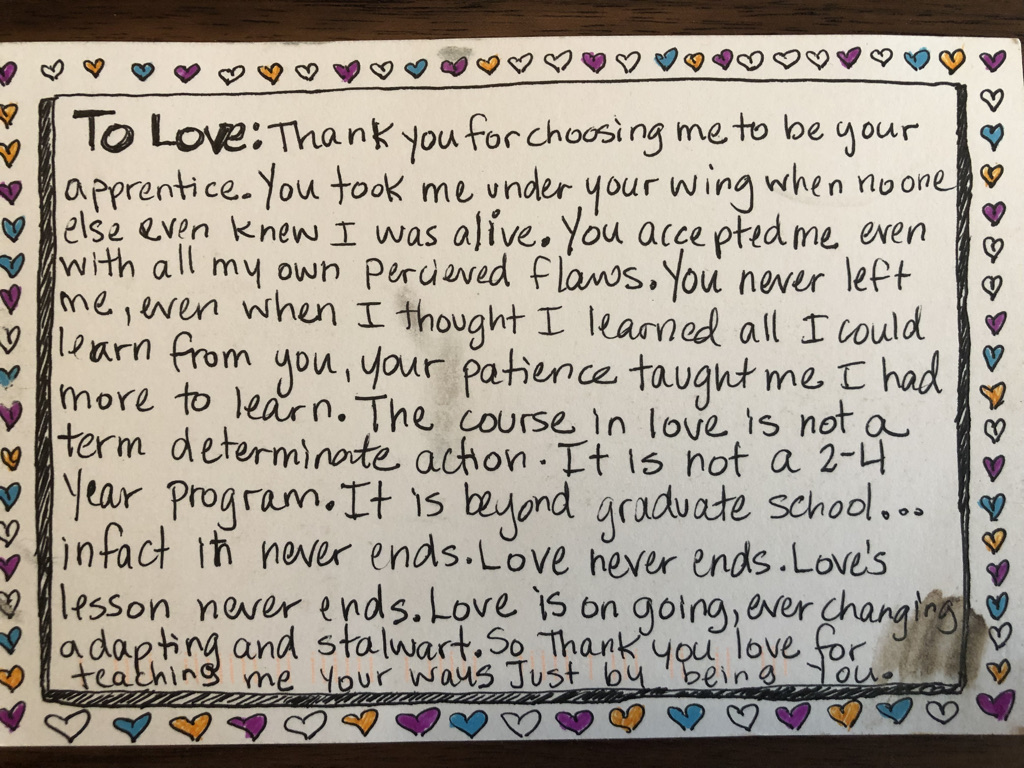 To Love: Thank you for choosing me to be your
apprentice. You took me under your wing when no one
else even knew I was alive. You accepted me even
with all my own percieved flaws. You never left
me, even when I thought I learned all I could
learn from you, your patience taught me I had
more to learn. The course in love is not a
term determinate action. It is not a 2-4
Year program. It is beyond graduate school...
infact it never ends. Love never ends. Love's
lesson never ends. Love is on going, ever changing
adapting and stalwart. So Thank you love for
teaching me your ways Just by being You.